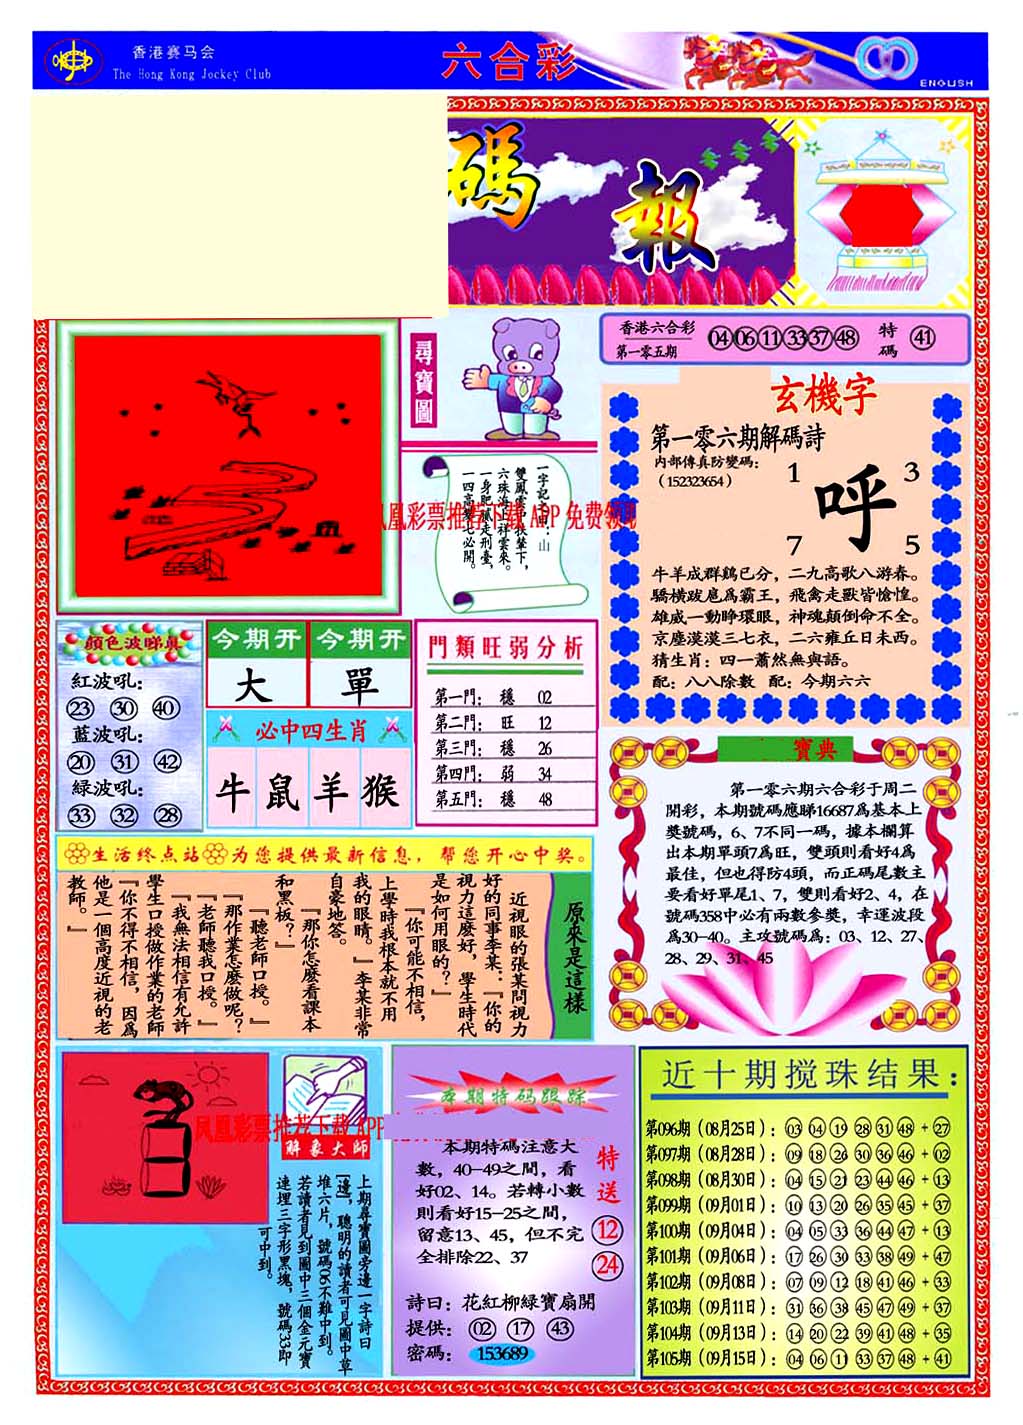 香港赛马会
The Hong Kong Jockey Club
六合彩
ENGLISH
碼報
尋寶圖
香港六合彩
第一零五期
04 06 11 33 37 48
特碼
41
玄機字
第一零六期解碼詩
内部傳真防變碼:
(152323654)
1
3
呼
7
5
牛羊成群鷄已分，二九高歌八游春。
驕橫跋扈爲霸王，飛禽走獸皆愴惶。
雄威一動睁環眼，神魂顛倒命不全。
京塵漠漠三七衣，二六雍丘日未西。
猜生肖：四一蕭然無與語。
配：八八除數 配：今期六六
雙鳳雲中扶輦下，
一身肥膩走刑臺，
凰彩票推荐下载 APP 免费领取
顔色波睇真
紅波吼:
23 30 40
藍波吼:
20 31 42
綠波吼:
33 32 28
今期开
大
今期开
單
必中四生肖
牛 鼠 羊 猴
門類旺弱分析
第一門: 穩 02
第二門: 旺 12
第三門: 穩 26
第四門: 弱 34
第五門: 穩 48
寶典
第一零六期六合彩于周二
開彩，本期號碼應睇16687爲基本上
獎號碼，6、7不同一碼，據本欄算
出本期單頭7爲旺，雙頭則看好4爲
最佳，但也得防4頭，而正碼尾數主
要看好單尾1、7，雙則看好2、4，在
號碼358中必有兩數參獎，幸運波段
爲30-40。主攻號碼爲：03、12、27、
28、29、31、45
生活终点站 为您提供最新信息，帮您开心中奖。
原來是這樣
近視眼的張某問視力
好的同事李某：『你的
視力這麼好，學生時代
是如何用眼的？』
『你可能不相信，
上學時我根本就不用
我的眼睛。』李某非常
自豪地答。
『那你怎麼看課本
和黑板？』
『聽老師口授。』
『那作業怎麼做呢？
『老師聽我口授。』
『我無法相信有允許
學生口授做作業的老師
『你不得不相信，因爲
他是一個高度近視的老
教師。』
凤凰彩票推荐下载 APP
解象大師
上期尋寶圖旁邊一字詩曰
[邊]，聰明的讀者可見圖中草
堆六片，號碼06不難中到。
若讀者見到圖中三個金元寶
連埋三字形黑塊，號碼33即
可中到。
本期特码跟踪
本期特碼注意大
數，40-49之間，看
好02、14。若轉小數
則看好15-25之間，
留意13、45，但不完
全排除22、37
特送
12
24
詩曰：花紅柳綠寶扇開
提供： 02 17 43
密碼： 153689
近十期搅珠结果：
第096期（08月25日）：03 04 19 28 31 48 + 27
第097期（08月28日）：09 18 26 30 36 46 + 02
第098期（08月30日）：04 15 21 23 44 46 + 13
第099期（09月01日）：10 13 20 26 35 45 + 37
第100期（09月04日）：04 05 33 36 44 47 + 13
第101期（09月06日）：17 26 30 33 38 49 + 47
第102期（09月08日）：07 09 12 18 41 46 + 33
第103期（09月11日）：31 36 38 45 47 49 + 37
第104期（09月13日）：14 20 22 39 41 48 + 35
第105期（09月15日）：04 06 11 33 37 48 + 41